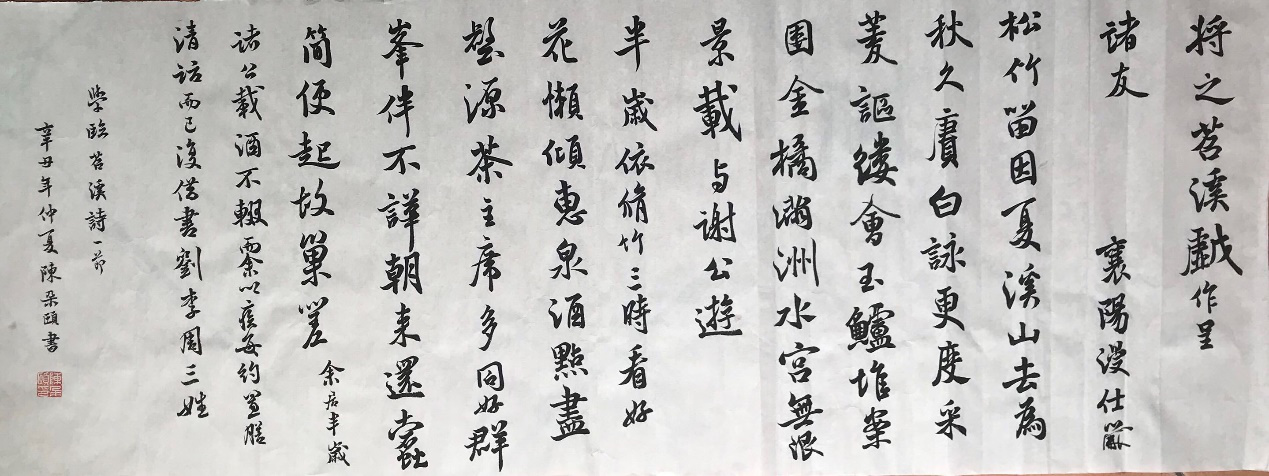 将之苕溪戱作呈
諸友 襄陽漫仕黻
松竹留因夏溪山去為
秋久賡白詠更度采
菱謳縷會玉鱸堆案
團金橘滿洲水宮無限
景載与謝公遊
半歲依脩竹三時看好
花懶傾惠泉酒點盡
壑源茶主席多同好群
峯伴不譁朝来還蠹
简便起故巢嗟 余居半歲
諸公載酒不輟而余以疾每約置膳
清話而已復借書劉李周三姓
學臨苕溪詩一节
辛丑年仲夏陳朵頤書